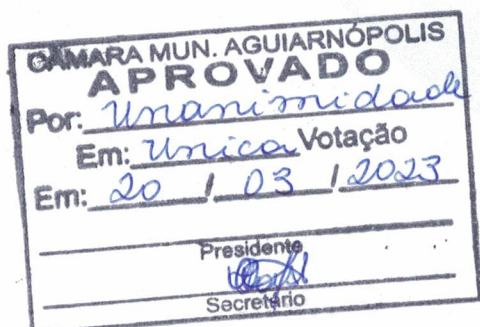 CÂMARA MUN. AGUIARNÓPOLIS
APROVADO
Por: Unanimidade
Em: Unica Votação
Em: 20 / 03 / 2023
Presidente
Secretário